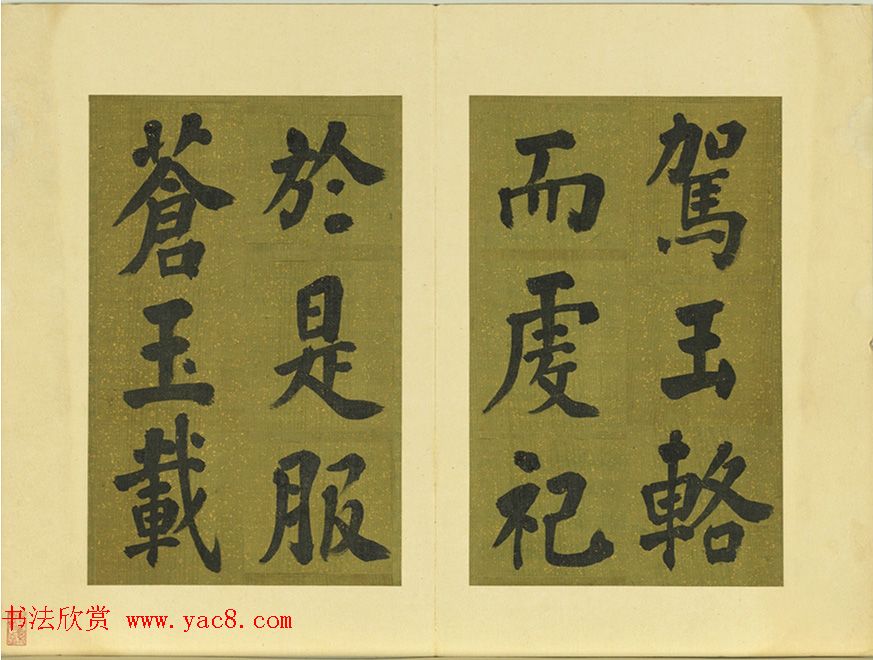 駕玉輅
而虔祀
於是服
蒼玉載
书法欣赏 www.yac8.com